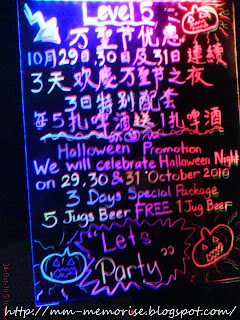 Level 5
万圣节优惠
10月29日,30日及31日連續
3天欢慶万圣节之夜
3日特别配套
每5扎啤酒送1扎啤酒
Halloween Promotion
We will celebrate Halloween Night
on 29,30 & 31st October 2010
3 Days Special Package
5 Jugs Beer FREE 1 Jug Beer
"Let's
Party"
http://mm-memorise.blogspot.com/